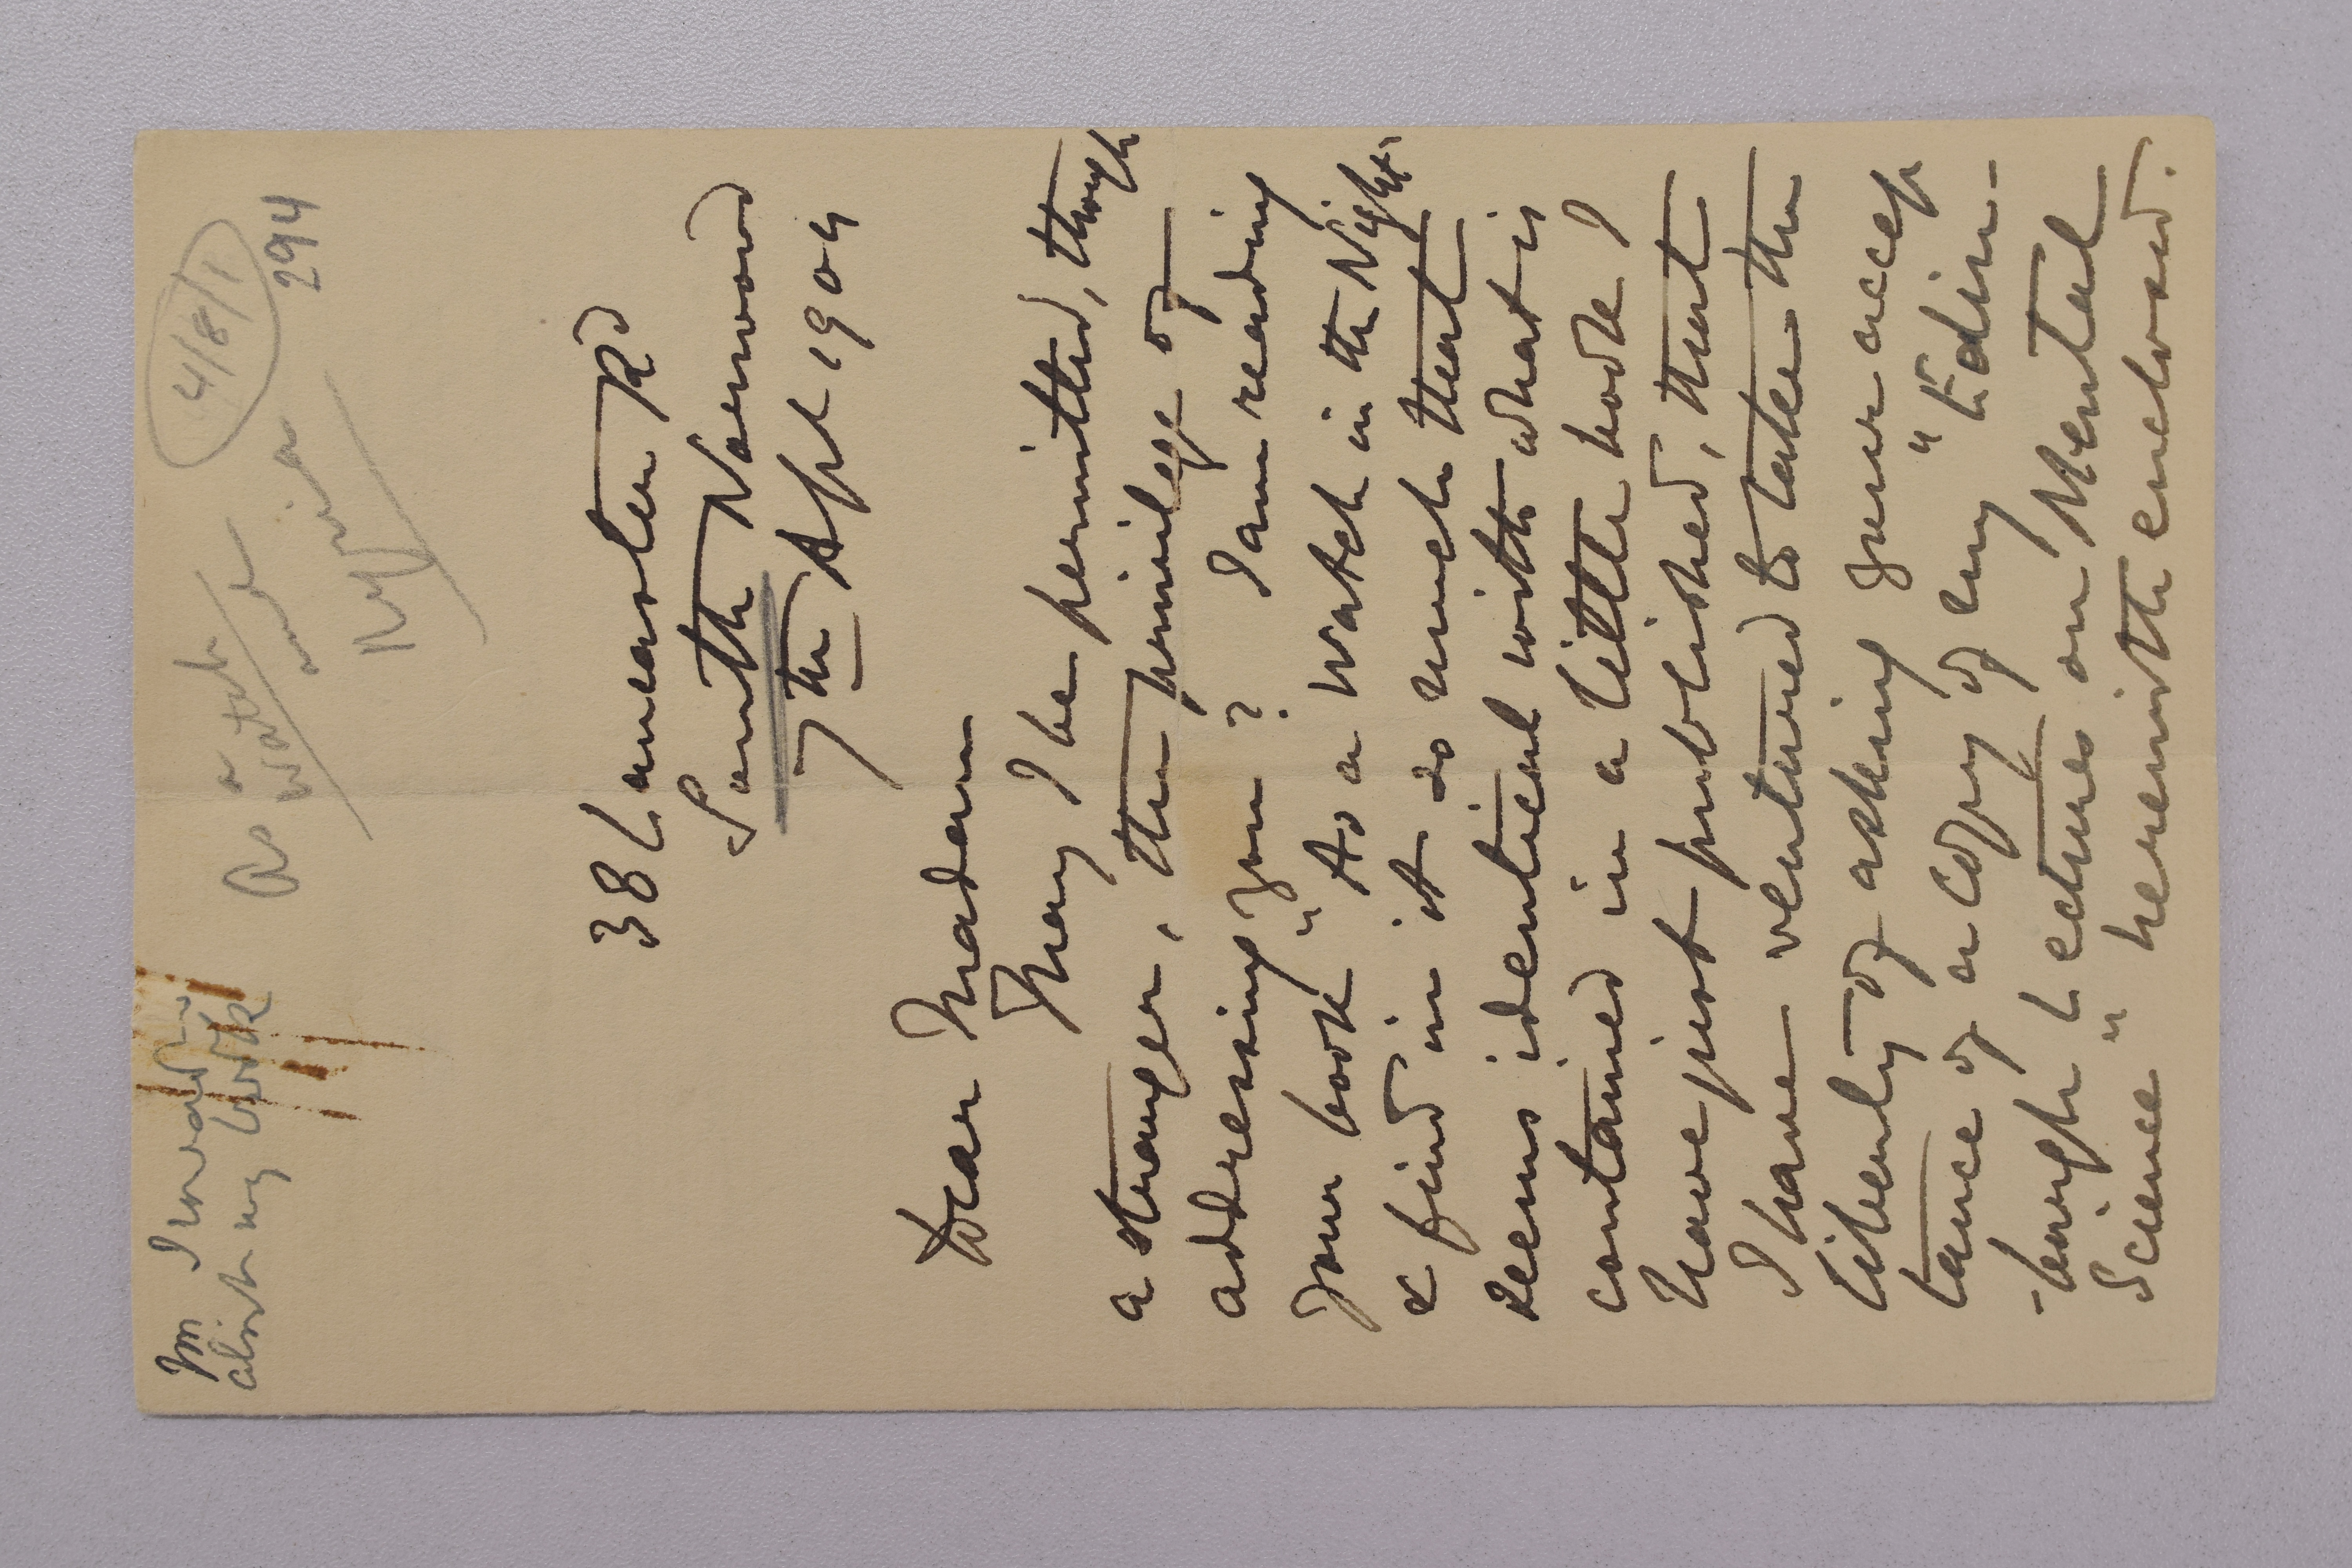 4/8/1
294
As a
Watch
38 Lancaster Rd
South Norwood
7th Apl 1904
Dear Madam
May I be permitted, though
a stranger, the privilege of
addressing you? I am reading
your book "As a Watch in the Night"
& find in it so much that
seems identical with what is
contained in a little book I
have just published, that
I have ventured to take the
liberty of asking your accep
tance of a copy of my "Edin-
-burgh Lectures on Mental
Science" herewith enclosed.